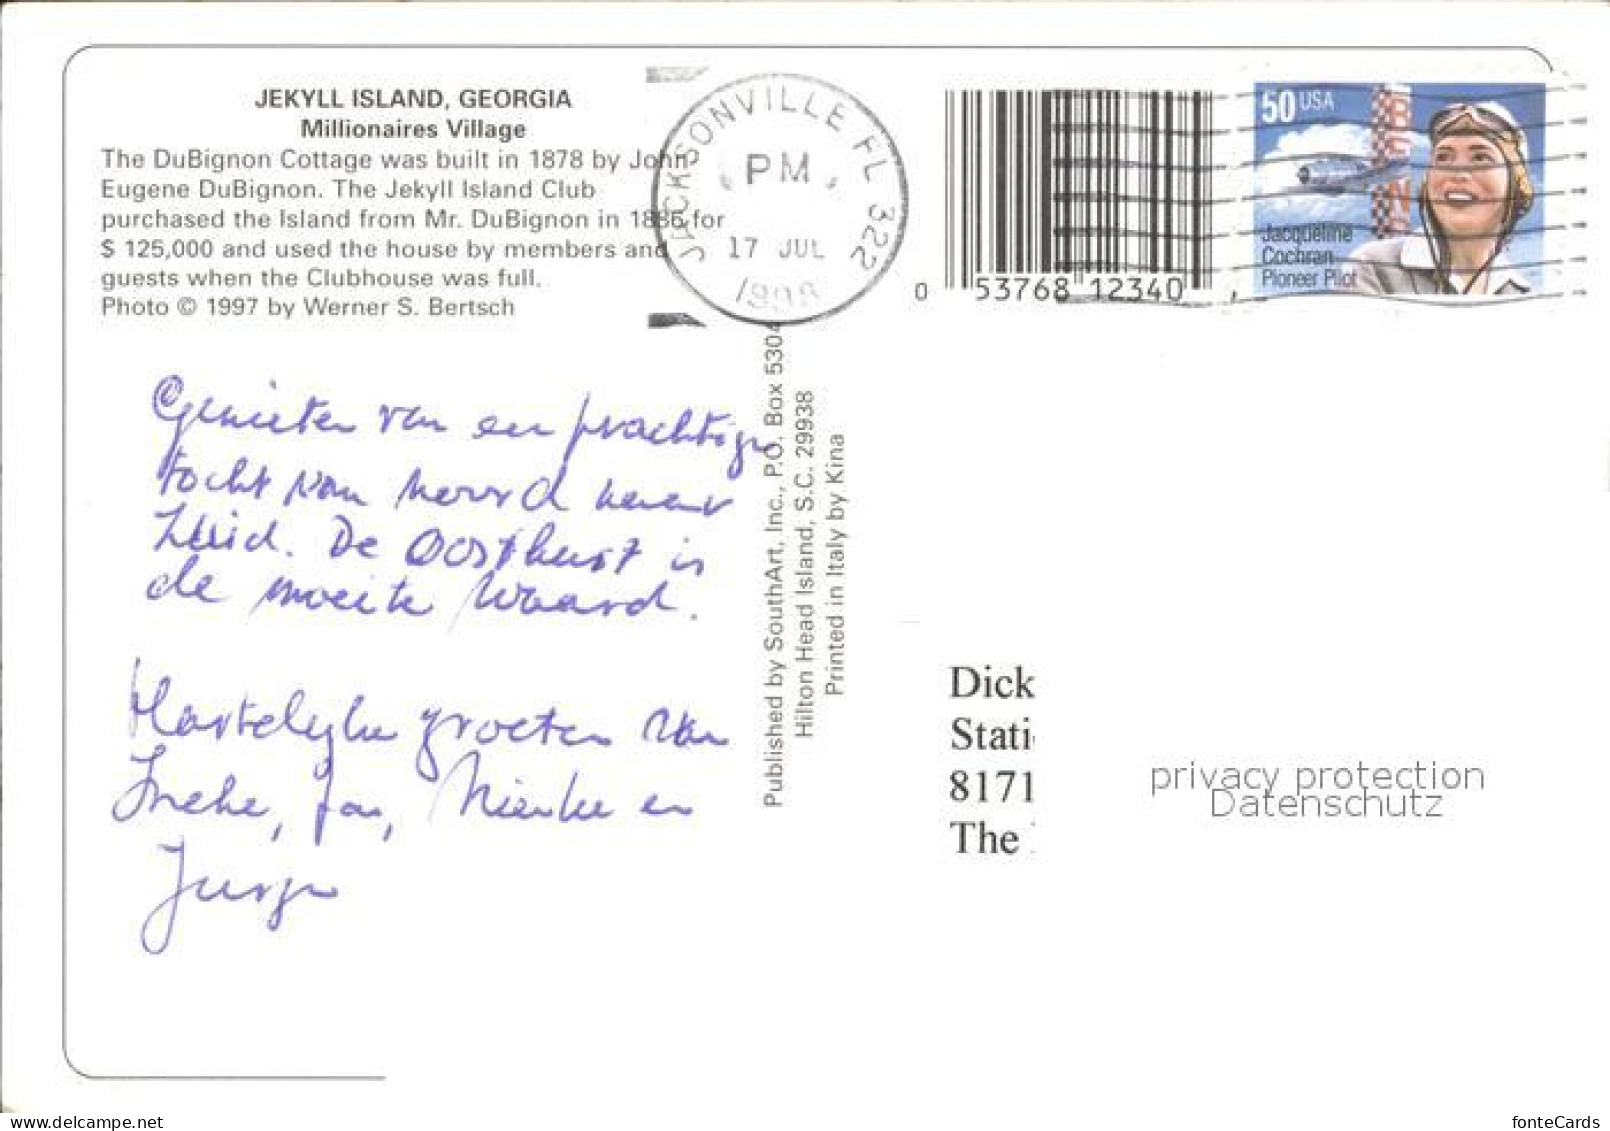 JEKYLL ISLAND, GEORGIA
Millionaires Village
The DuBignon Cottage was built in 1878 by John
Eugene DuBignon. The Jekyll Island Club
purchased the Island from Mr. DuBignon in 1886 for
$ 125,000 and used the house by members and
guests when the Clubhouse was full.
Photo © 1997 by Werner S. Bertsch
JACKSONVILLE FL 322
PM
17 JUL
1998
0 53768 12340
50 USA
RENO
Jacqueline
Cochran
Pioneer Pilot
Genieten van een prachtige
tocht van noord naar
Zuid. De Oostkust is
de moeite waard.
Hartelijke groeten van
Ineke, Jan, Nienke en
Jurjen
Published by SouthArt, Inc., P.O. Box 5304
Hilton Head Island, S.C. 29938
Printed in Italy by Kina
Dick
Stati
8171
The
privacy protection
Datenschutz
www.delcampe.net
fonteCards